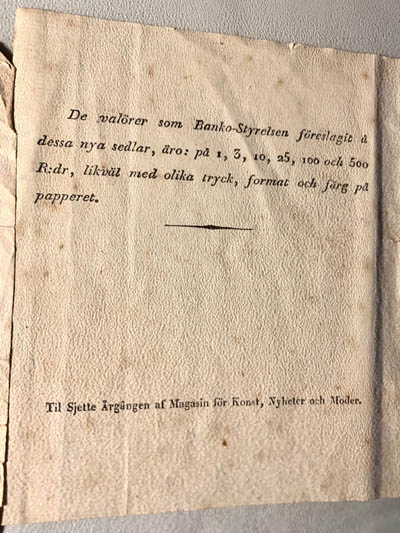 De valörer som Banko-Styrelsen föreslagit å
dessa nya sedlar, äro: på 1, 3, 10, 25, 100 och 500
R:dr, likväl med olika tryck, format och färg på
papperet.
Til Sjette Årgången af Magasin för Konst, Nyheter och Moder.